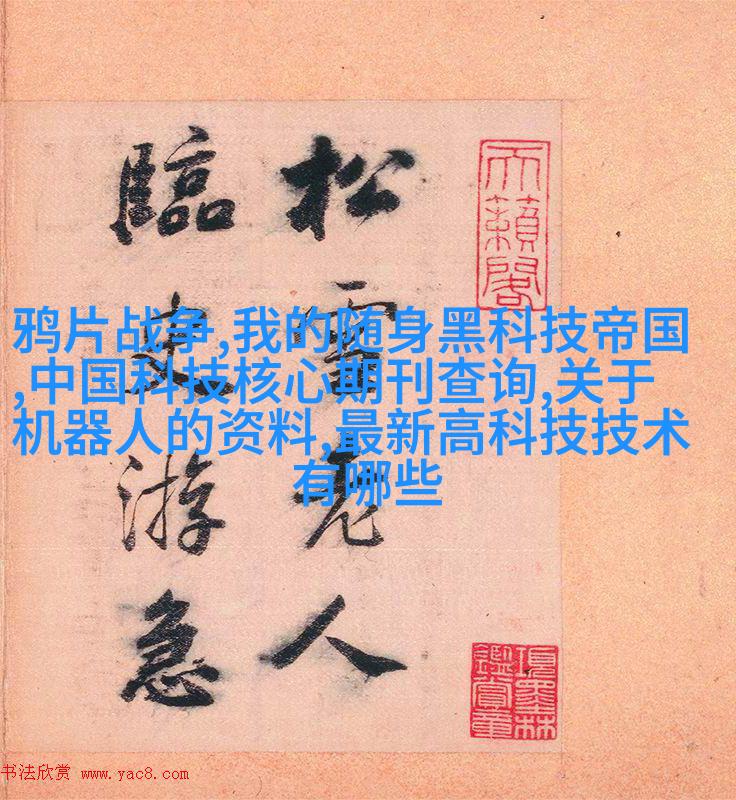 天籟閣
松雪老人
臨史游急
項墨林
鑑賞章
鸦片战争,我的随身黑科技帝国
,中国科技核心期刊查询,关于
机器人的资料,最新高科技技术
有哪些
书法欣赏 www.yac8.com